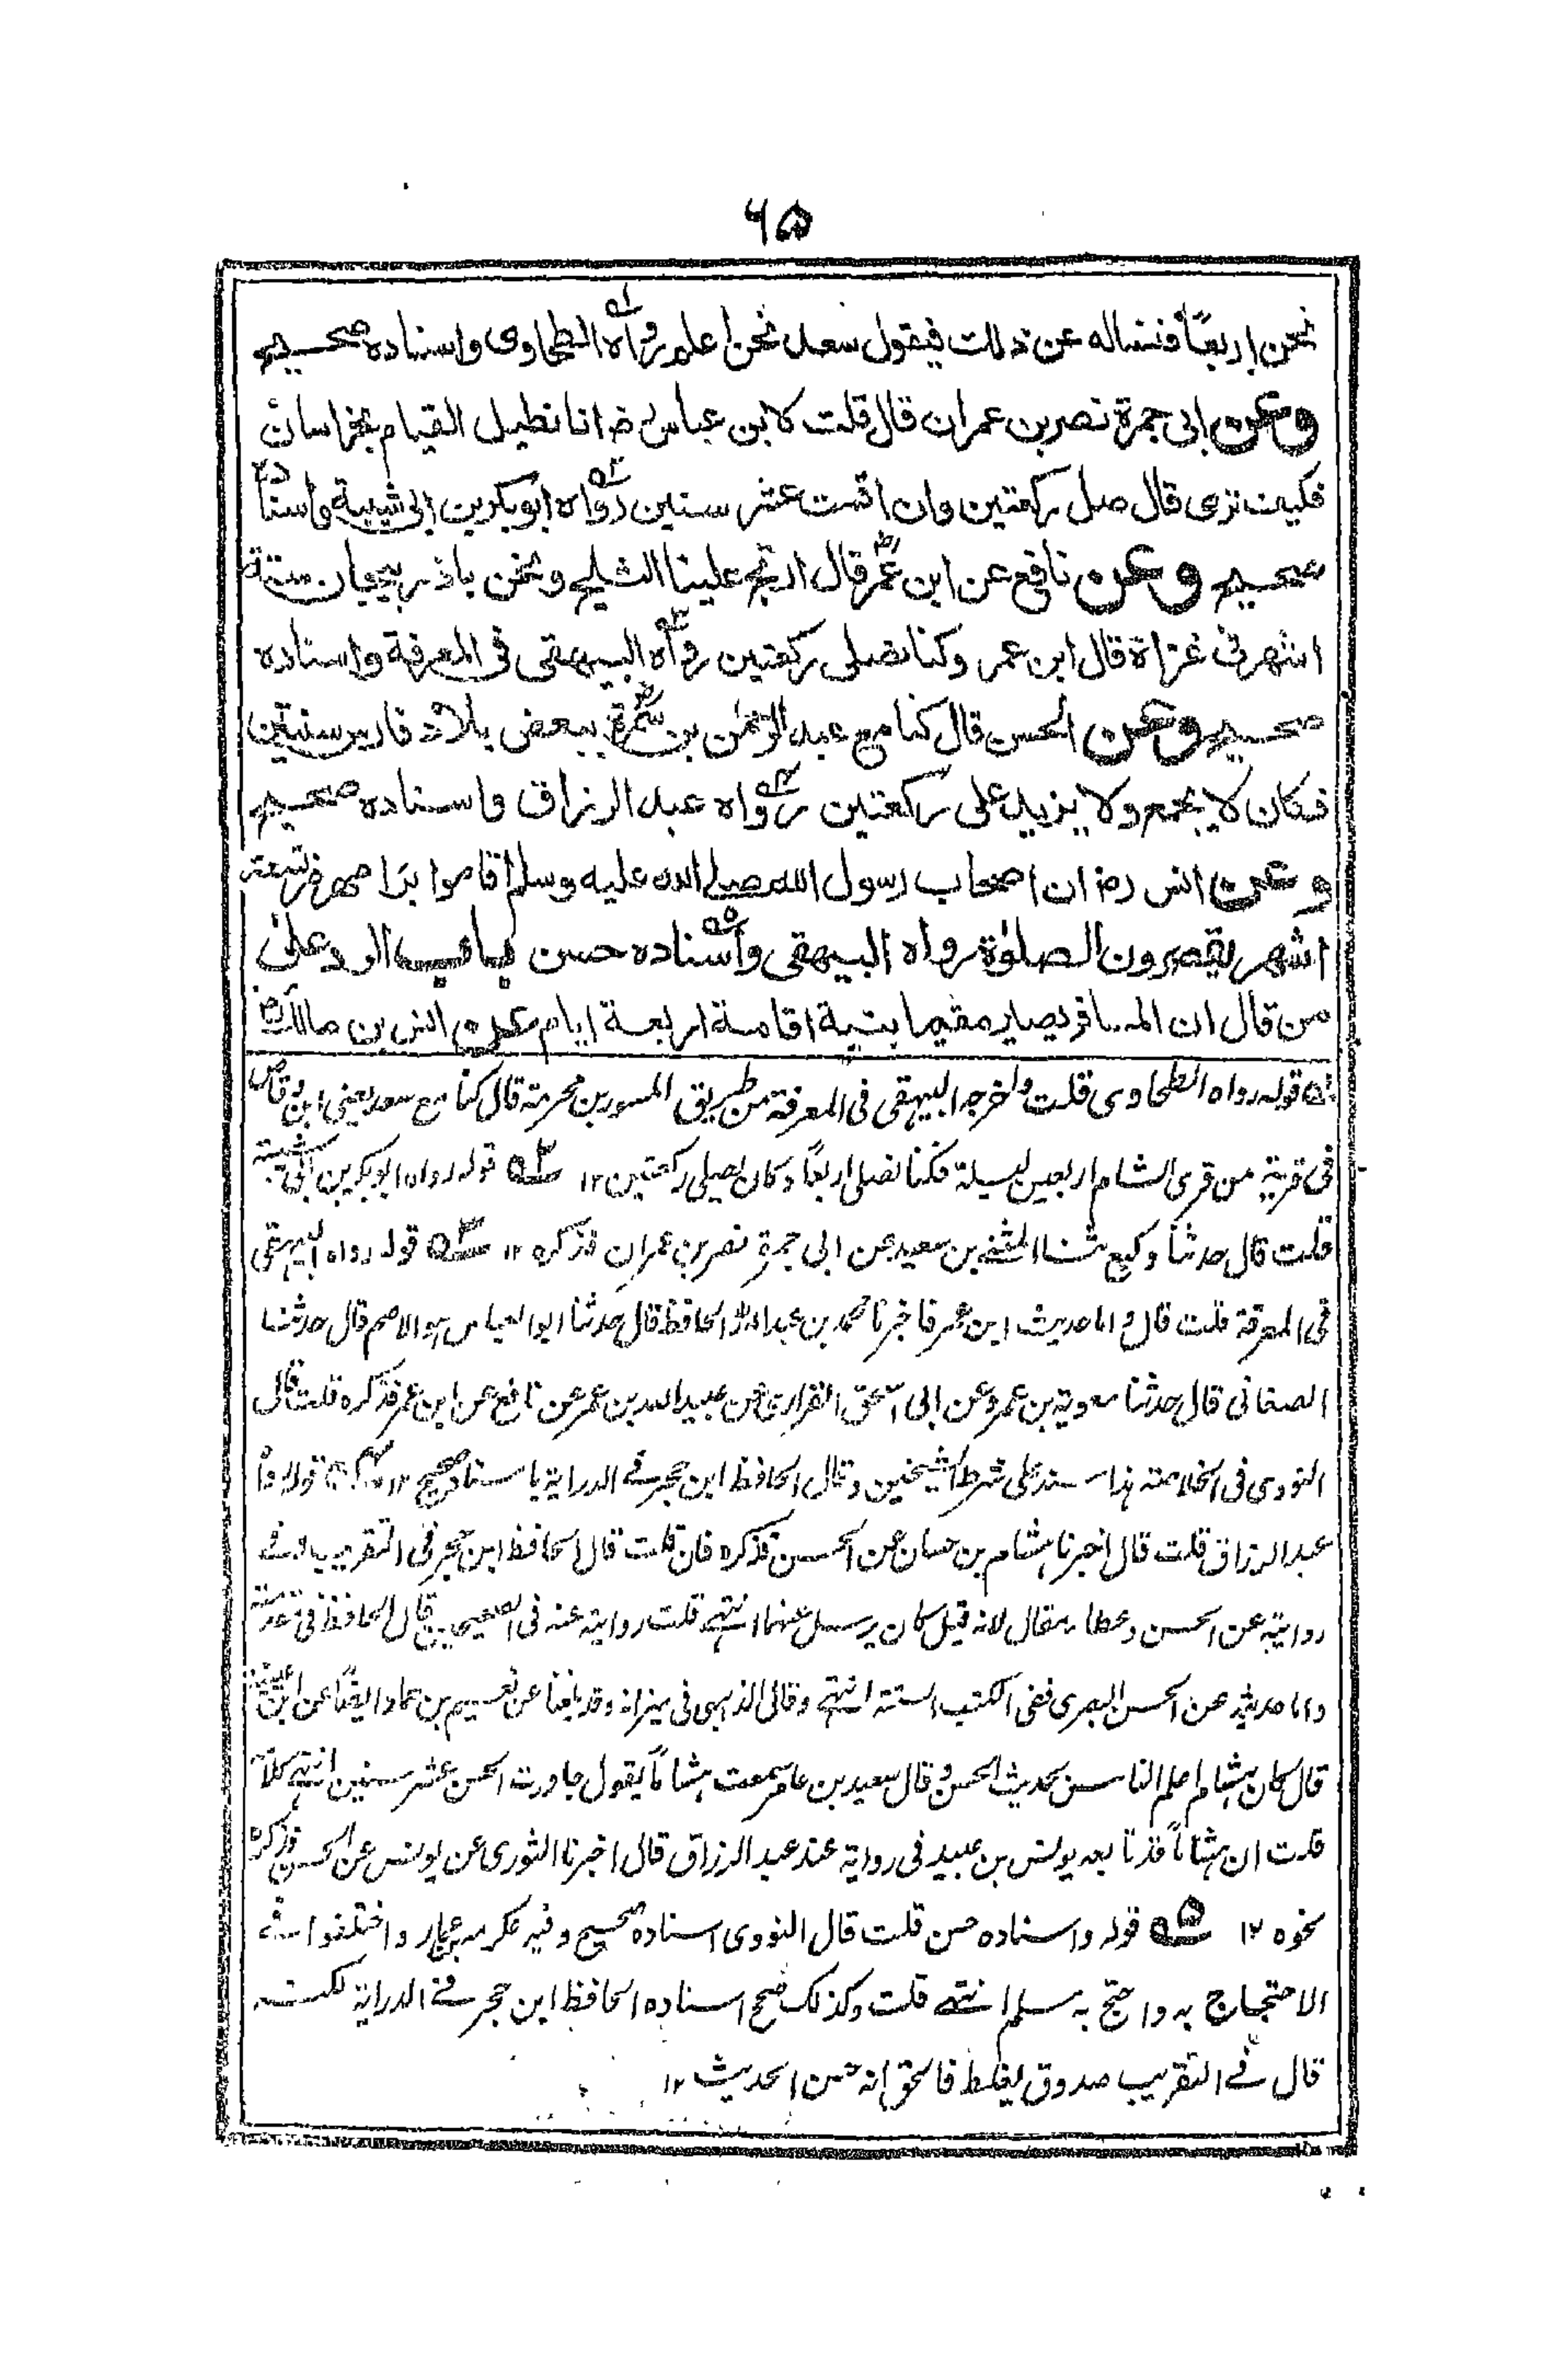 ۶۵
نحن اربعًا فنسأله عن ذلك فيقول سعد نحن اعلم رواه الطحاوى واسناده صحيح
وعن ابى جمرة نصر بن عمران قال قلت لابن عباس رض انا نطيل القيام بخراسان
فكيف ترى قال صل ركعتين وان اقمت عشر سنين رواه ابو بكر بن ابى شيبة واسناده
صحيح وعن نافع عن ابن عمر رض قال ارتج علينا الثلج ونحن باذربيجان ستة
اشهر فى غزاة قال ابن عمر وكنا نصلى ركعتين رواه البيهقى فى المعرفة واسناده
صحيح وعن الحسن قال كنا مع عبد الرحمٰن بن سمرة رض ببعض بلاد فارس سنتين
فكان لا يجمع ولا يزيد على ركعتين رواه عبد الرزاق واسناده صحيح
وعن انس رض ان اصحاب رسول الله صلى الله عليه وسلم اقاموا برامهرمز تسعة
اشهر يقصرون الصلوٰة رواه البيهقى واسناده حسن باب الرد على
من قال ان المسافر يصير مقيما بنية اقامة اربعة ايام عن انس بن مالك رض
۱ه قوله رواه الطحاوى قلت واخرجه البيهقى فى المعرفة من طريق المسور بن مخرمة قال كنا مع سعد يعنى ابن وقاص
فى قرية من قرى الشام اربعين ليلة فكنا نصلى اربعًا وكان يصلى ركعتين ۱۲ ۲ه قوله رواه ابو بكر بن ابى شيبة
قلت قال حدثنا وكيع ثنا المثنى بن سعيد عن ابى جمرة نصر بن عمران فذكره ۱۲ ۳ه قوله رواه البيهقى
فى المعرفة قلت قال واما حديث ابن عمر فاخبرنا محمد بن عبد الله الحافظ قال حدثنا ابو العباس هو الاصم قال حدثنا
الصغانى قال حدثنا معوية بن عمرو عن ابى اسحق الفزارى عن عبيد الله بن عمر عن نافع عن ابن عمر فذكره قلت قال
النووى فى الخلاصة هذا سند على شرط الشيخين وقال الحافظ ابن حجر فى الدراية باسناد صحيح ۱۲ ۴ه قوله رواه
عبد الرزاق قلت قال اخبرنا هشام بن حسان عن الحسن فذكره فان قلت قال الحافظ ابن حجر فى التقريب فى
روايته عن الحسن وعطاء مقال لانه قيل كان يرسل عنهما انتهى قلت روايته عنه فى الصحيحين قال الحافظ فى مقدمته
واما حديثه عن الحسن البصرى ففى الكتب الستة انتهى وقال الذهبى فى ميزانه وقد بلغنا عن نعيم بن حماد ايضًا عن ابن عيينة
قال كان هشام اعلم الناس بحديث الحسن وقال سعيد بن عامر سمعت هشامًا يقول جاورت الحسن عشر سنين انتهى كلامه
قلت ان هشامًا قد تابعه يونس بن عبيد فى رواية عند عبد الرزاق قال اخبرنا الثورى عن يونس عن الحسن فذكره
نحوه ۱۲ ۵ه قوله واسناده حسن قلت قال النووى اسناده صحيح وفيه عكرمة بن عمار واختلفوا فى
الاحتجاج به واحتج به مسلم انتهى قلت وكذلك صحح اسناده الحافظ ابن حجر فى الدراية لكنه
قال فى التقريب صدوق يغلط فالحق انه حسن الحديث ۱۲